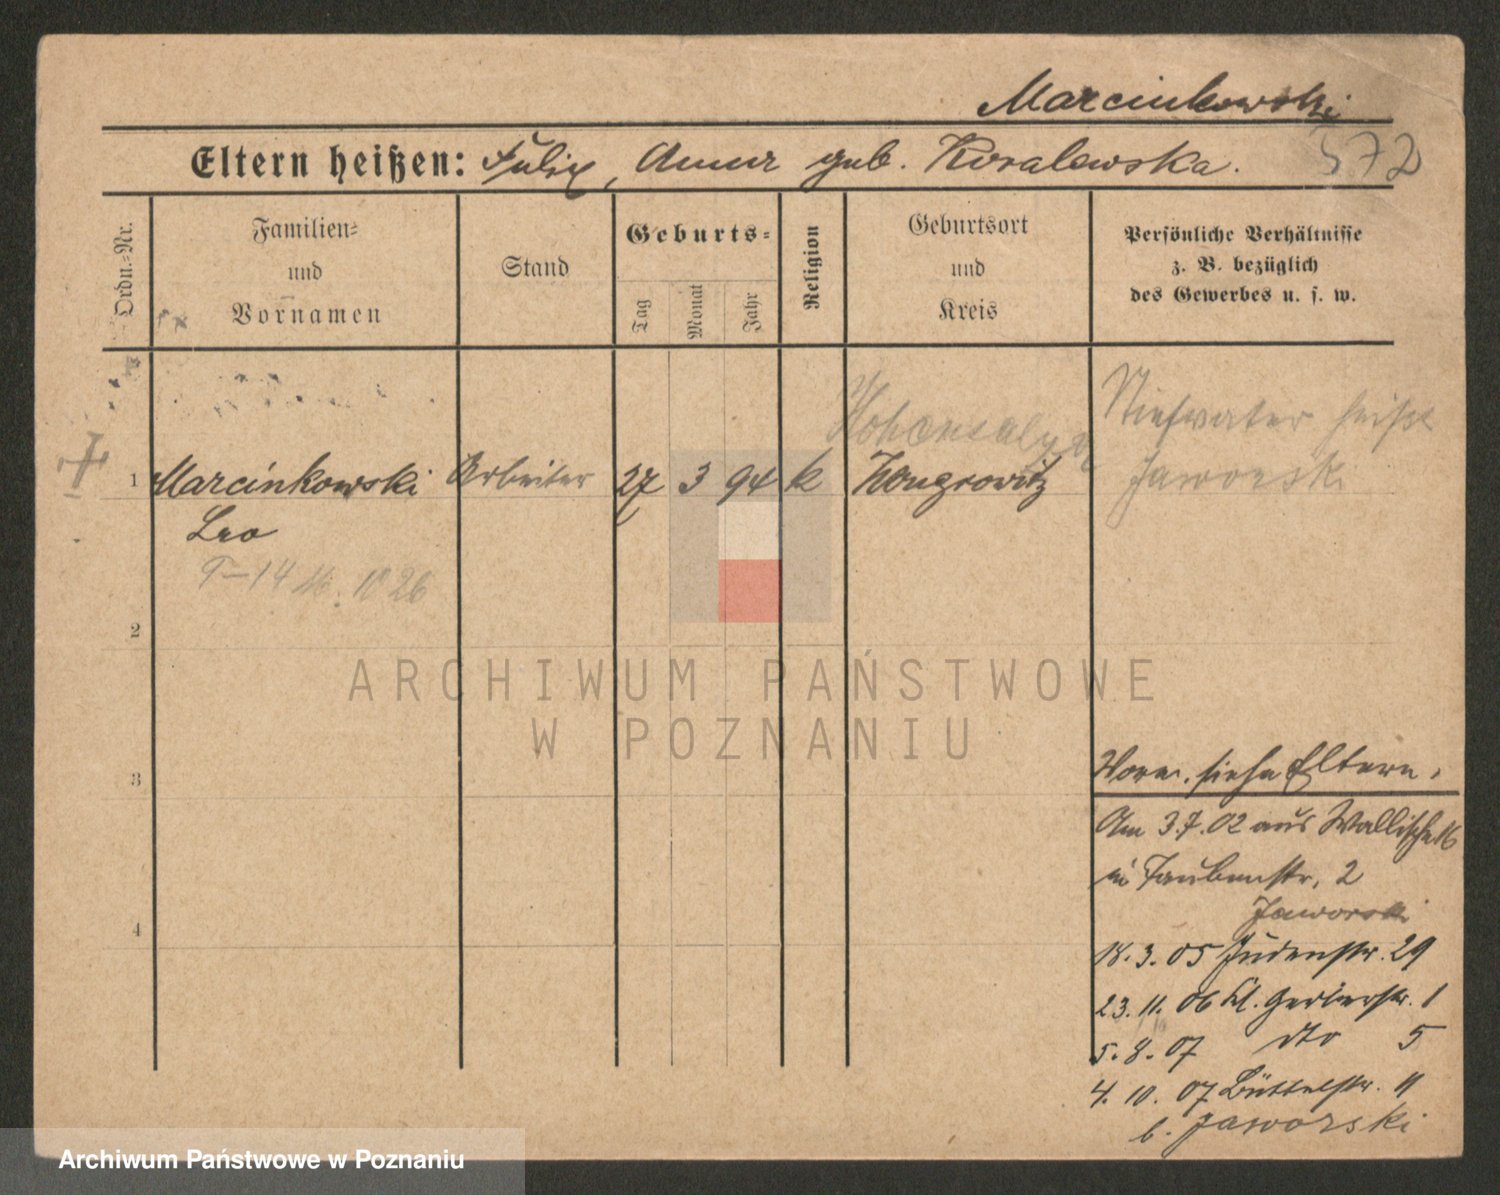 Marcinkowski
572
Eltern heißen: Felix, Anna geb. Kovalewska.
Ordn.-Nr.
Familien- und Vornamen
Stand
Geburts-
Tag
Monat
Jahr
Religion
Geburtsort und Kreis
Persönliche Verhältnisse
z. B. bezüglich
des Gewerbes u. s. w.
Hohensalza
Stiefvater heißt
Jaworski
1 Marcinkowski Arbeiter 27 3 94 k Wongrowitz
Leo
14 26
2
3
4
siehe Eltern.
Am 3.7.02 aus Wallische 16
in Taubenstr. 2
Jaworski
18.3.05 Judenstr. 29
23.11.06 Kl. Gerberstr. 1
5.8.07 dto 5
4.10.07 Büttelstr. 11
b. Jaworski
ARCHIWUM PAŃSTWOWE
W POZNANIU
Archiwum Państwowe w Poznaniu